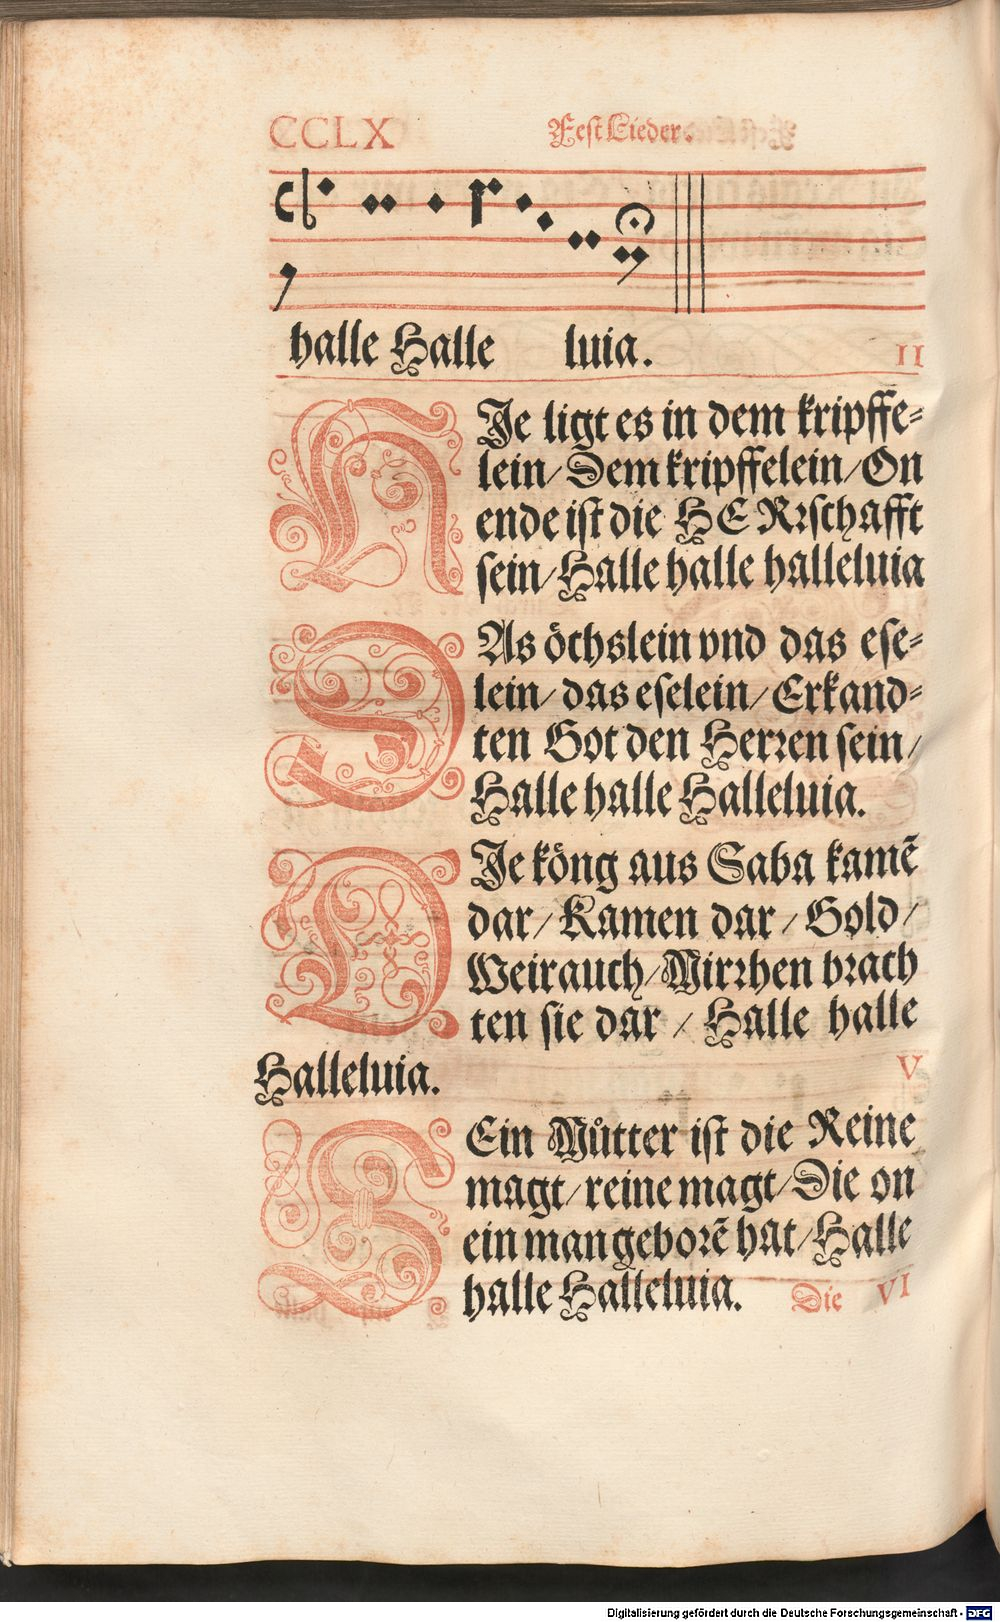 CCLX Fest Lieder.
halle Halle luia.
II
HJe ligt es in dem kripffe-
lein/ Dem kripffelein/ On
ende ist die HERrschafft
sein/ Halle halle halleluia
DAs öchslein vnd das ese-
lein/ das eselein/ Erkand-
ten Got den Herren sein/
Halle halle Halleluia.
DJe köng aus Saba kamē
dar/ Kamen dar/ Gold/
Weirauch/ Mirrhen brach
ten sie dar/ Halle halle
Halleluia.
V
SEin Můtter ist die Reine
magt/ reine magt/ Die on
ein man geborē hat/ Halle
halle Halleluia.
Die VI
Digitalisierung gefördert durch die Deutsche Forschungsgemeinschaft - DFG